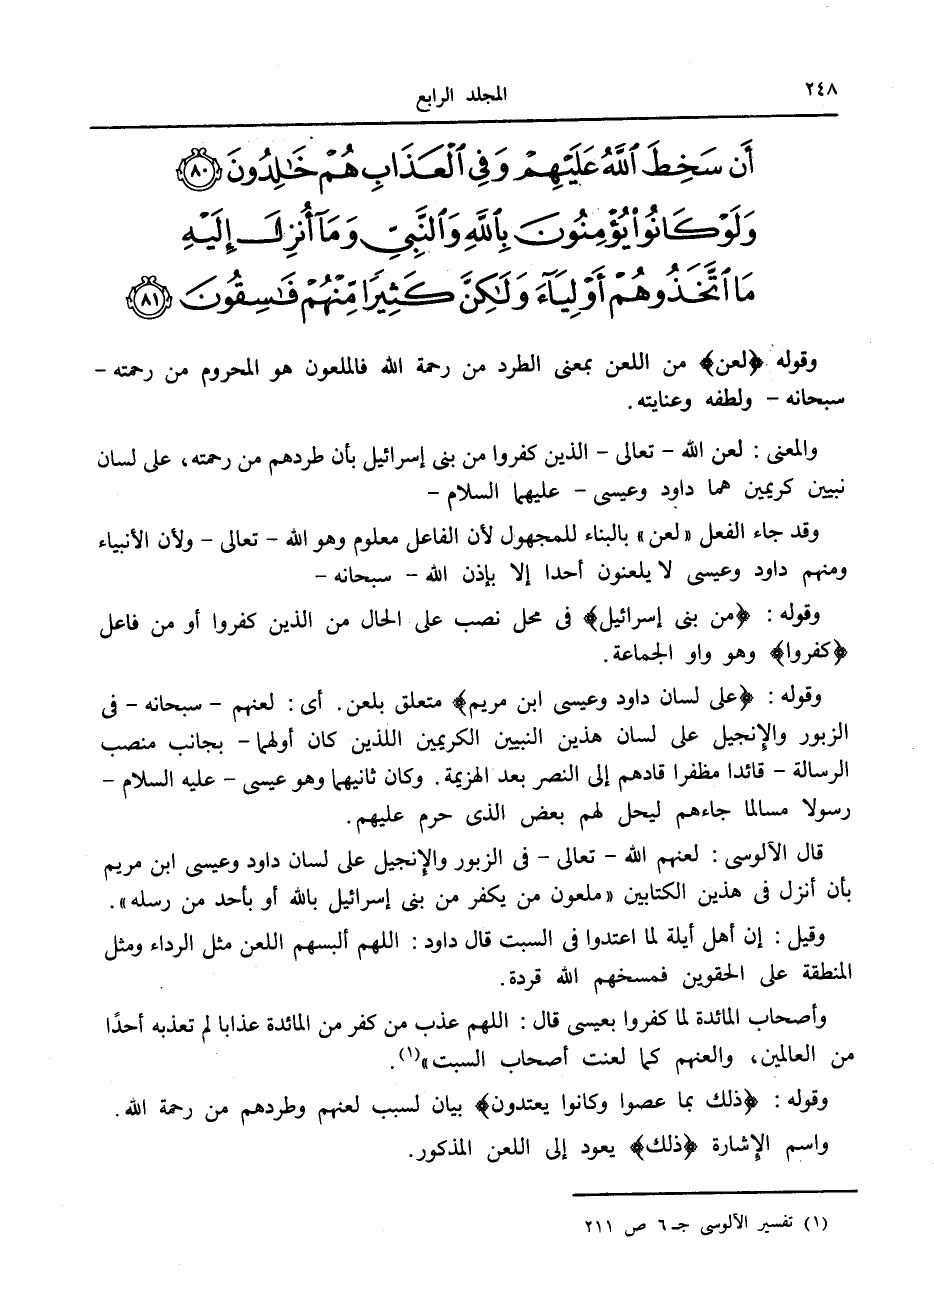 ٢٤٨
المجلد الرابع
أَن سَخِطَ ٱللَّهُ عَلَيْهِمْ وَفِى ٱلْعَذَابِ هُمْ خَٰلِدُونَ ٨٠
وَلَوْ كَانُوا۟ يُؤْمِنُونَ بِٱللَّهِ وَٱلنَّبِىِّ وَمَآ أُنزِلَ إِلَيْهِ
مَا ٱتَّخَذُوهُمْ أَوْلِيَآءَ وَلَٰكِنَّ كَثِيرًا مِّنْهُمْ فَٰسِقُونَ ٨١
وقوله ﴿لعن﴾ من اللعن بمعنى الطرد من رحمة الله فالملعون هو المحروم من رحمته –
سبحانه – ولطفه وعنايته.
والمعنى : لعن الله – تعالى – الذين كفروا من بنى إسرائيل بأن طردهم من رحمته، على لسان
نبيين كريمين هما داود وعيسى – عليهما السلام –
وقد جاء الفعل «لعن» بالبناء للمجهول لأن الفاعل معلوم وهو الله – تعالى – ولأن الأنبياء
ومنهم داود وعيسى لا يلعنون أحدا إلا بإذن الله – سبحانه –
وقوله : ﴿من بنى إسرائيل﴾ فى محل نصب على الحال من الذين كفروا أو من فاعل
﴿كفروا﴾ وهو واو الجماعة.
وقوله : ﴿على لسان داود وعيسى ابن مريم﴾ متعلق بلعن. أى : لعنهم – سبحانه – فى
الزبور والإنجيل على لسان هذين النبيين الكريمين اللذين كان أولهما – بجانب منصب
الرسالة – قائدا مظفرا قادهم إلى النصر بعد الهزيمة. وكان ثانيهما وهو عيسى – عليه السلام –
رسولا مسالما جاءهم ليحل لهم بعض الذى حرم عليهم.
قال الآلوسى : لعنهم الله – تعالى – فى الزبور والإنجيل على لسان داود وعيسى ابن مريم
بأن أنزل فى هذين الكتابين «ملعون من يكفر من بنى إسرائيل بالله أو بأحد من رسله».
وقيل : إن أهل أيلة لما اعتدوا فى السبت قال داود : اللهم ألبسهم اللعن مثل الرداء ومثل
المنطقة على الحقوين فمسخهم الله قردة.
وأصحاب المائدة لما كفروا بعيسى قال : اللهم عذب من كفر من المائدة عذابا لم تعذبه أحدًا
من العالمين، والعنهم كما لعنت أصحاب السبت»(١).
وقوله : ﴿ذلك بما عصوا وكانوا يعتدون﴾ بيان لسبب لعنهم وطردهم من رحمة الله.
واسم الإشارة ﴿ذلك﴾ يعود إلى اللعن المذكور.
(١) تفسير الآلوسى جـ ٦ ص ٢١١